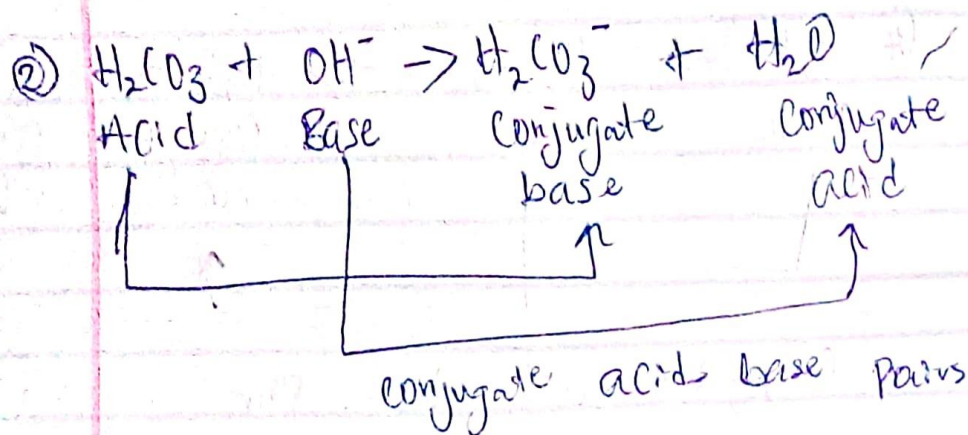 ② H₂CO₃ + OH⁻ → H₂CO₃⁻ + H₂O
Acid Base Conjugate Conjugate
base acid
conjugate acid base pairs